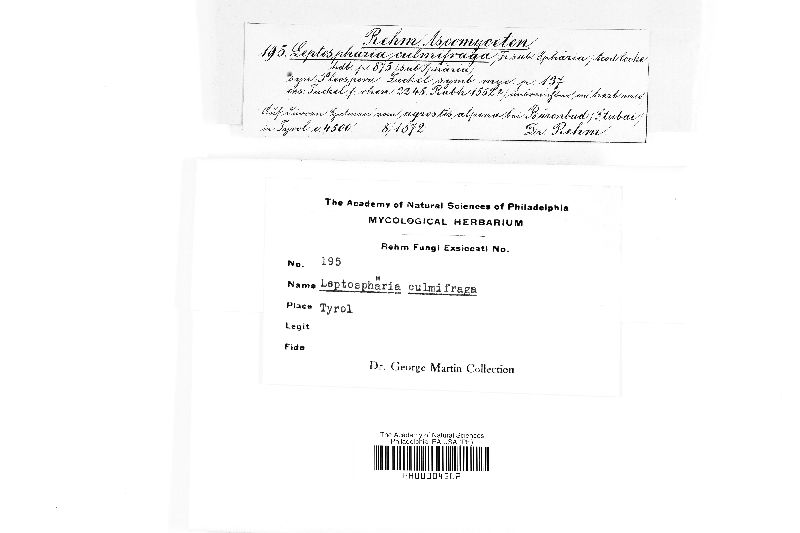 Rehm, Ascomyceten
195. Leptosphaeria culmifraga, Fr. sub Sphaeria,
hdb. p. 873 sub Sphaeria,
Syn. Pleospora Fuckel symb. myc. p. 137
exs. Fuckel f. rhen. 2245. Rabh. 1552
Auf dürren agrostis alpina, bei Bärenbad, Stubai,
in Tyrol c. 4500' 8/1872 Dr. Rehm
The Academy of Natural Sciences of Philadelphia
MYCOLOGICAL HERBARIUM
Rehm Fungi Exsiccati No.
No. 195
Name Leptosphäria culmifraga
Place Tyrol
Legit
Fide
Dr. George Martin Collection
The Academy of Natural Sciences
Philadelphia, PA USA (PH)